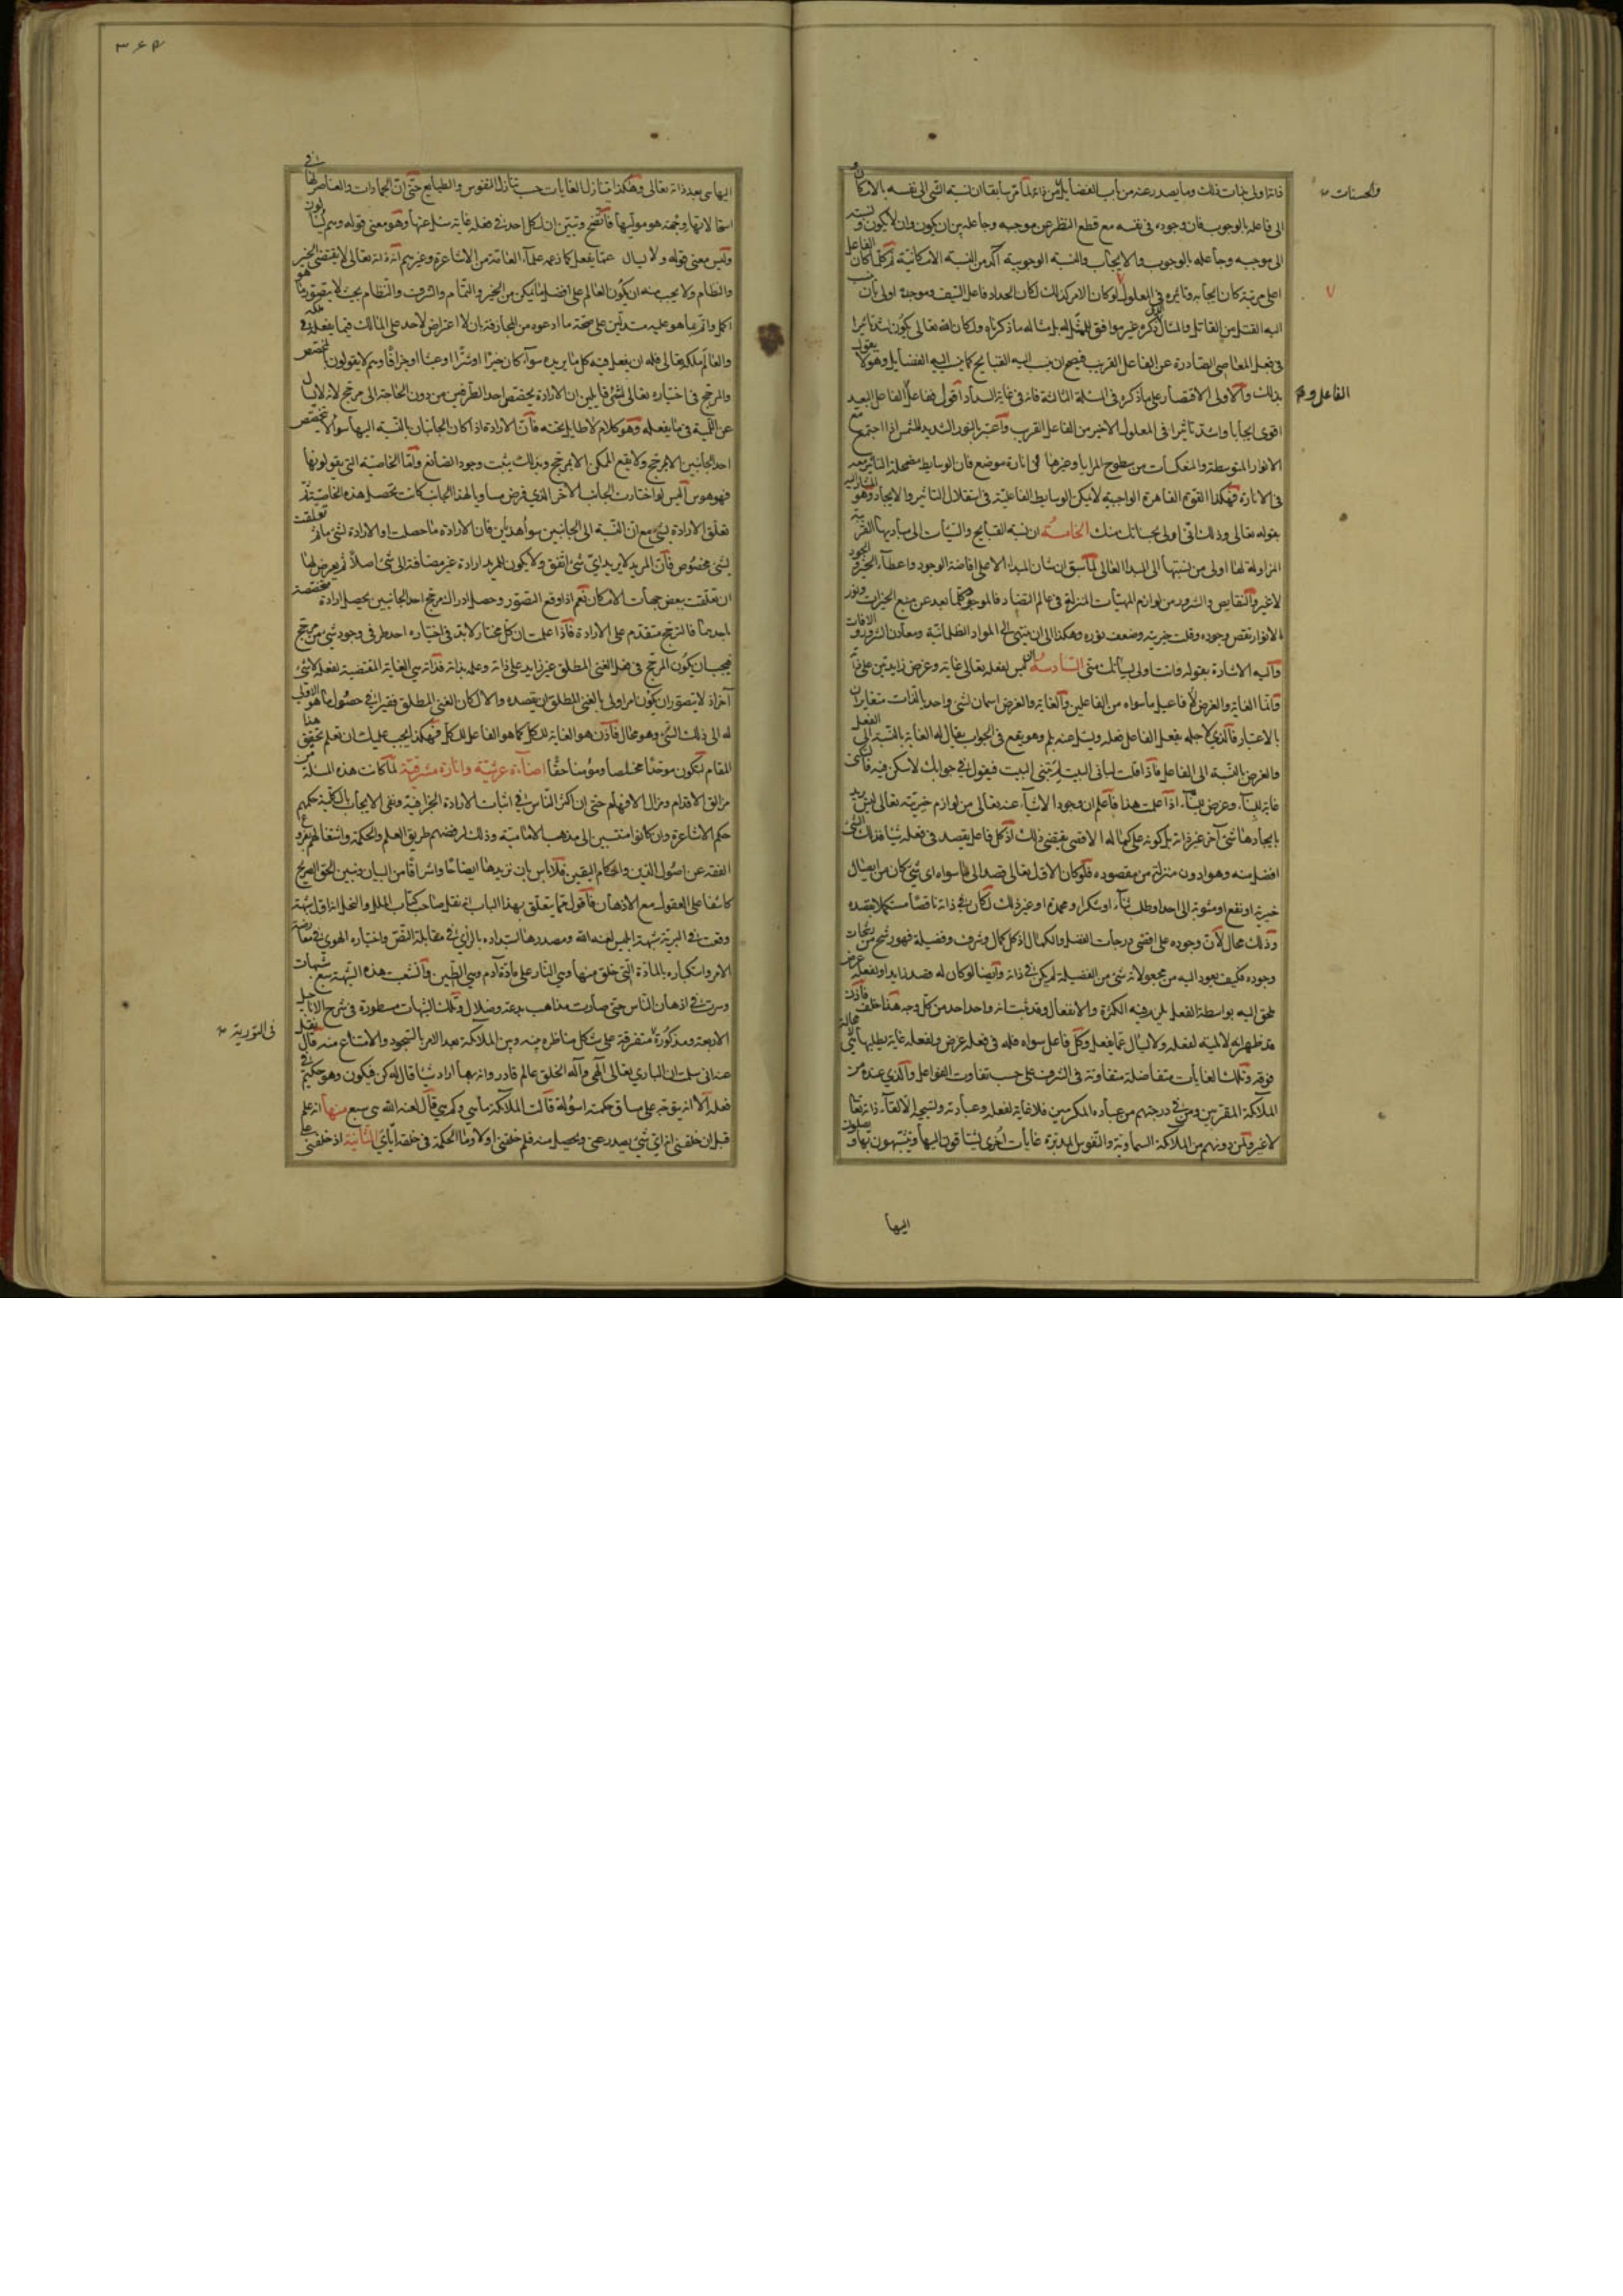 ذاته اولى بحسناتك وما يصدر عنه من باب الفضايل من ذاته لما مر سابقا ان نسبة الشئ الى نفسه بالامكان و
والحسنات
الى فاعله بالوجوب فان وجوده فى نفسه مع قطع النظر عن موجبه وجاعله بين ان يكون وان لا يكون ونسبته
الى موجبه وجاعله بالوجوب والايجاب والنسبة الوجوبية آكد من النسبة الامكانية ثم كلما كان الفاعل
اعلى مرتبة كان ايجابه وتاثيره فى المعلول لو كان الامر كذلك لكان الحداد فاعل السيف وموجده اولى بان ينسب
اليه القتل من القاتل والمثال الذى ذكره غير موافق للممثل له بل مثاله ما ذكرناه ولكان الله تعالى يكون اشد تاثيرا
فى فعل المعاصى الصادرة عن الفاعل القريب فيصح ان ينسب اليه القبايح كما ينسب اليه الفضايل وهو لا يقول
بذلك والاولى الاقتصار على ما ذكره فى المسئلة الثالثة فانه فى غاية السداد اقول ففاعل الفاعل البعيد
الفاعل و
اقوى ايجابا واشد تاثيرا فى المعلول الاخير من الفاعل القريب واعتبر بالنور الشديد للشمس اذا اجتمع مع
الانوار المتوسطة والمنعكسات من سطوح المرايا وغيرها فى انارة موضع فان الوسايط مضمحلة التاثير معه
فى الانارة فهكذا القوة القاهرة الواجبية لا يمكن الوسايط الفاعلية فى استقلال التاثير والايجاد وهو المشار اليه
بقوله تعالى وذلك انى اولى بحسناتك منك الخامسة ان نسبة القبايح والسيئات الى مباديها القريبة
المزاولة لها اولى من نسبتها الى المبدأ العالى لما سبق ان شان المبدأ الاعلى افاضة الوجود واعطاء الخير والجود
لا غير والنقايص والشرور من لوازم المهيات المتنزلة فى عالم التضاد فالموجود كلما بعد عن منبع الخيرات ونور
الانوار نقص وجوده وقلت خيريته وضعف نوره وهكذا الى ان ينتهى الى المواد الظلمانية ومعادن الشرور والافات
واليه الاشارة بقوله وانت اولى بسيئاتك منى السادسة ليس لفعله تعالى غاية وغرض زايدين على ذاته
واما الغاية والغرض لا فاعيل ما سواه من الفاعلين والغاية والغرض اسمان لشئ واحد بالذات متغايران
بالاعتبار فالذى لاجله يفعل الفاعل فعله ويسئل عنه بلم وهو يقع فى الجواب يقال له الغاية بالنسبة الى الفعل
والغرض بالنسبة الى الفاعل فاذا قلت لبانى البيت لم تبنى البيت فيقول فى جوابك لاسكن فيه فالسكنى
غاية للبناء وغرض للبناء اذا علمت هذا فاعلم ان وجود الاشياء عنه تعالى من لوازم خيريته تعالى ليس يريد
بايجادها شئ آخر غير ذاته بل كونه على كماله الاقصى يقتضى ذلك اذ كل فاعل يقصد فى فعله شيئا فذلك الشئ
افضل منه وهو ادون منزلة من مقصوده فلو كان الاول تعالى قصد الى ما سواه اى شئ كان من ايصال
خيرية او نفع او مثوبة الى احد او طلب ثناء او شكر او محمدة او غير ذلك لكان فى ذاته ناقصا مستكملا بقصده
وذلك محال لان وجوده على اقصى درجات الفضل والكمال اذ كل كمال وشرف وفضيلة فهو رشح من رشحات
وجوده فكيف يعود اليه من مجعولاته شئ من الفضيلة لم يكن فى ذاته وايضا لو كان له قصد زايد او لفعله غرض
يلحق اليه بواسطة الفعل لزم فيه الكثرة والانفعال وقد ثبت انه واحد احد من كل وجه هذا خلف فاذن
قد ظهر انه لا لمية لفعله ولا يسال عما يفعل وكل فاعل سواه فله فى فعله غرض ولفعله غاية يطلبها لا محالة شئ
فوقه وتلك الغايات متفاضلة متفاوتة فى الشرف على حسب تفاوت الفواعل والذى عنده من
الملائكة المقربين ومن فى درجتهم من عباده المكرمين فلا غاية لفعله وعبادته وتسبيحه الا لقاء ذاته تعالى
لا غير ولمن دونهم من الملائكة السماوية والنفوس المدبرة غايات اخرى يشتاقون اليها ويتشبهون بها ويصلون
اليها
اليها هى بعد ذاته تعالى وهكذا يتنازل الغايات حسب تنازل النفوس والطبايع حتى ان الجمادات والعناصر لها فى
استحالاتها وجهة هو موليها فاتضح وتبين ان لكل احد فى فعله غاية يسئل عنها وهو معنى قوله وهم يسئلون
وليس معنى قوله ولا يسال عما يفعل كما زعمه علماء العامة من الاشاعرة وغيرهم انه ذاته تعالى لا يقتضى الخير
والنظام ولا يجب منه ان يكون العالم على افضل ما يمكن من الخير والتمام والشرف والنظام بحيث لا يتصور ما هو
اكمل واتم مما هو عليه مستدلين على صحة ما ادعوه من المجازفة بان لا اعتراض لاحد على المالك فيما يفعله فى ملكه
والعالم ملكه تعالى فله ان يفعل فيه كل ما يريده سواء كان خيرا او شرا او عبثا او جزافا وهم لا يقولون بالمخصص
والمرجح فى اختياره تعالى لشئ قايلين ان الارادة يخصص احد الطرفين من دون الحاجة الى مرجح لانه لا يسال
عن اللمية فى ما يفعله وهو كلام لا طايل تحته فان الارادة اذا كان الجانبان بالنسبة اليها سواء لا يخصص
احد الجانبين الا بمرجح ولا يقع الممكن الا بمرجح وبذلك يثبت وجود الصانع واما الخاصية التى يقولونها
فهو هوس اليس لو اختارت الجانب الاخر الذى فرض مساويا لهذا الجانب كانت تحصل هذه الخاصية ثم
تعلق الارادة بشئ مع ان النسبة الى الجانبين سواء هذيان فان الارادة ما حصلت اولا ارادة لشئ ما ثم تعلقت
بشئ مخصوص فان المريد لا يريد اى شئ اتفق ولا يكون للمريد ارادة غير مضافة الى شئ اصلا ثم يعرض لها
ان تعلقت ببعض جهات الامكان نعم اذا وقع التصور وحصل ادراك مرجح احد الجانبين يحصل ارادة مخصصة
باحدهما فالترجح متقدم على الارادة فاذا علمت ان كل مختار لابد فى اختياره احد طرفى وجود شئ من مرجح
فيجب ان يكون المرجح فى فعل الغنى المطلق غير زايد على ذاته وعلمه بذاته فذاته هى الغاية المقتضية لفعله لا شئ
آخر اذ لا يتصور ان يكون امر اولى بالغنى المطلق ان يقصده والا لكان الغنى المطلق فقيرا فى حصول ما هو الاولى
له الى ذلك الشئ وهو محال فاذن هو الغاية للكل كما هو الفاعل للكل فهكذا يجب عليك ان تعلم تحقيق هذا
المقام لتكون موحدا مخلصا ومؤمنا حقا اضاءة عرشية وانارة مشرقية لما كانت هذه المسئلة من
مزالق الاقدام ومزال الافهام حتى ان اكثر الناس فى اثبات الارادة الجزافية ونفى الايجاب بالكلية حكمهم
حكم الاشاعرة وان كانوا منتسبين الى مذهب الامامية وذلك لرفضهم طريق العلم والحكمة واشتغالهم بفروع
الفقه عن اصول الدين واحكام اليقين فلا باس بان نزيدها ايضاحا واشراقا من البيان ونبين الحق الصريح
كاشفا على العقول مع الاذهان فاقول مما يتعلق بهذا الباب انه نقل صاحب كتاب الملل والنحل انه اول شبهة
وقعت فى البرية شبهة ابليس لعنه الله ومصدرها استبداده بالراى فى مقابلة النص واختياره الهوى فى معارضة
الامر واستكباره بالمادة التى خلق منها وهى النار على مادة آدم وهى الطين وانشعبت هذه الشبهة سبع شبهات
وسرت فى اذهان الناس حتى صارت مذاهب بدعة وضلال وتلك الشبهات مسطورة فى شرح الاناجيل
الاربعة ومذكورة متفرقة على شكل مناظرة بينه وبين الملائكة بعد الامر بالسجود والامتناع منه قال فيما نقل
فى التورية
عنه انى سلمت ان البارى تعالى الهى واله الخلق عالم قادر وانه مهما اراد شيئا قال له كن فيكون وهو حكيم فى
فعله الا انه يتوجه على مساق حكمته اسولة قالت الملائكة ما هى وكم هى قال لعنه الله هى سبع منها انه علم
قبل ان خلقنى انه اى شئ يصدر عنى ويحصل منى فلم خلقنى اولا وما الحكمة فى خلقه اياى الثانية اذ خلقنى على